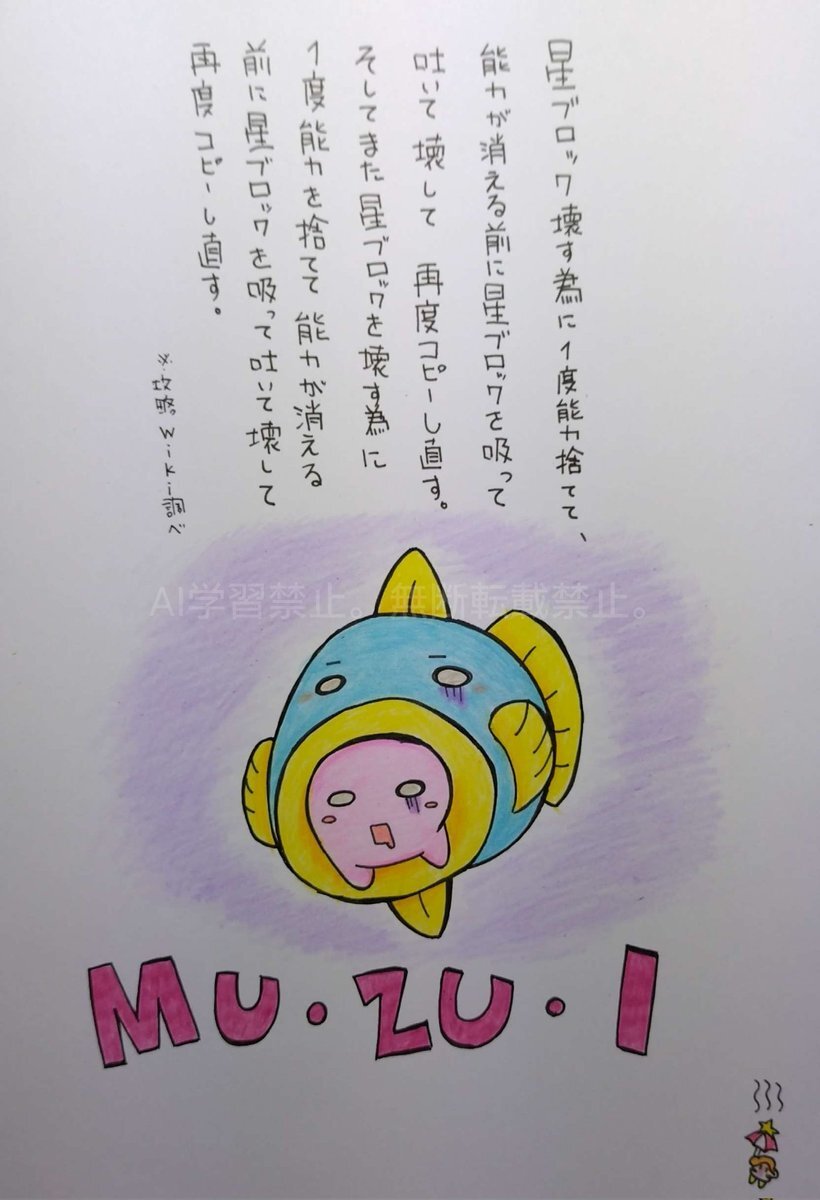 星ブロック壊す為に1度能力捨てて、
能力が消える前に星ブロックを吸って
吐いて壊して 再度コピーし直す。
そしてまた星ブロックを壊す為に
1度能力を捨てて能力が消える
前に星ブロックを吸って吐いて壊して
再度コピーし直す。
※攻略wiki調べ
AI学習禁止。無断転載禁止。
MU・ZU・I